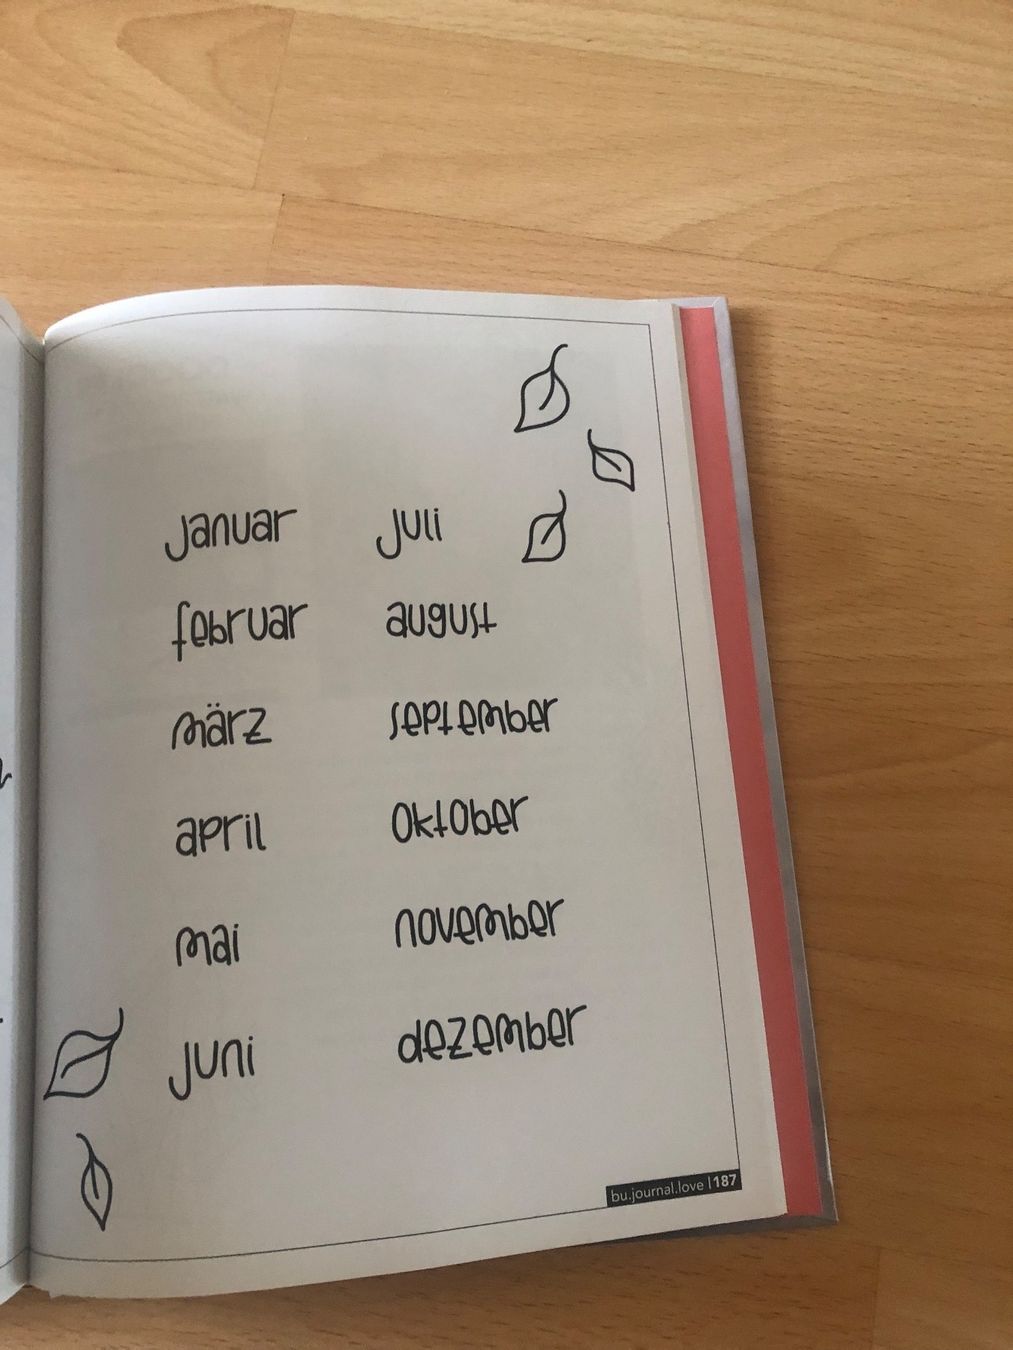 januar
februar
märz
april
mai
juni
juli
august
september
oktober
november
dezember
bu.journal.love | 187